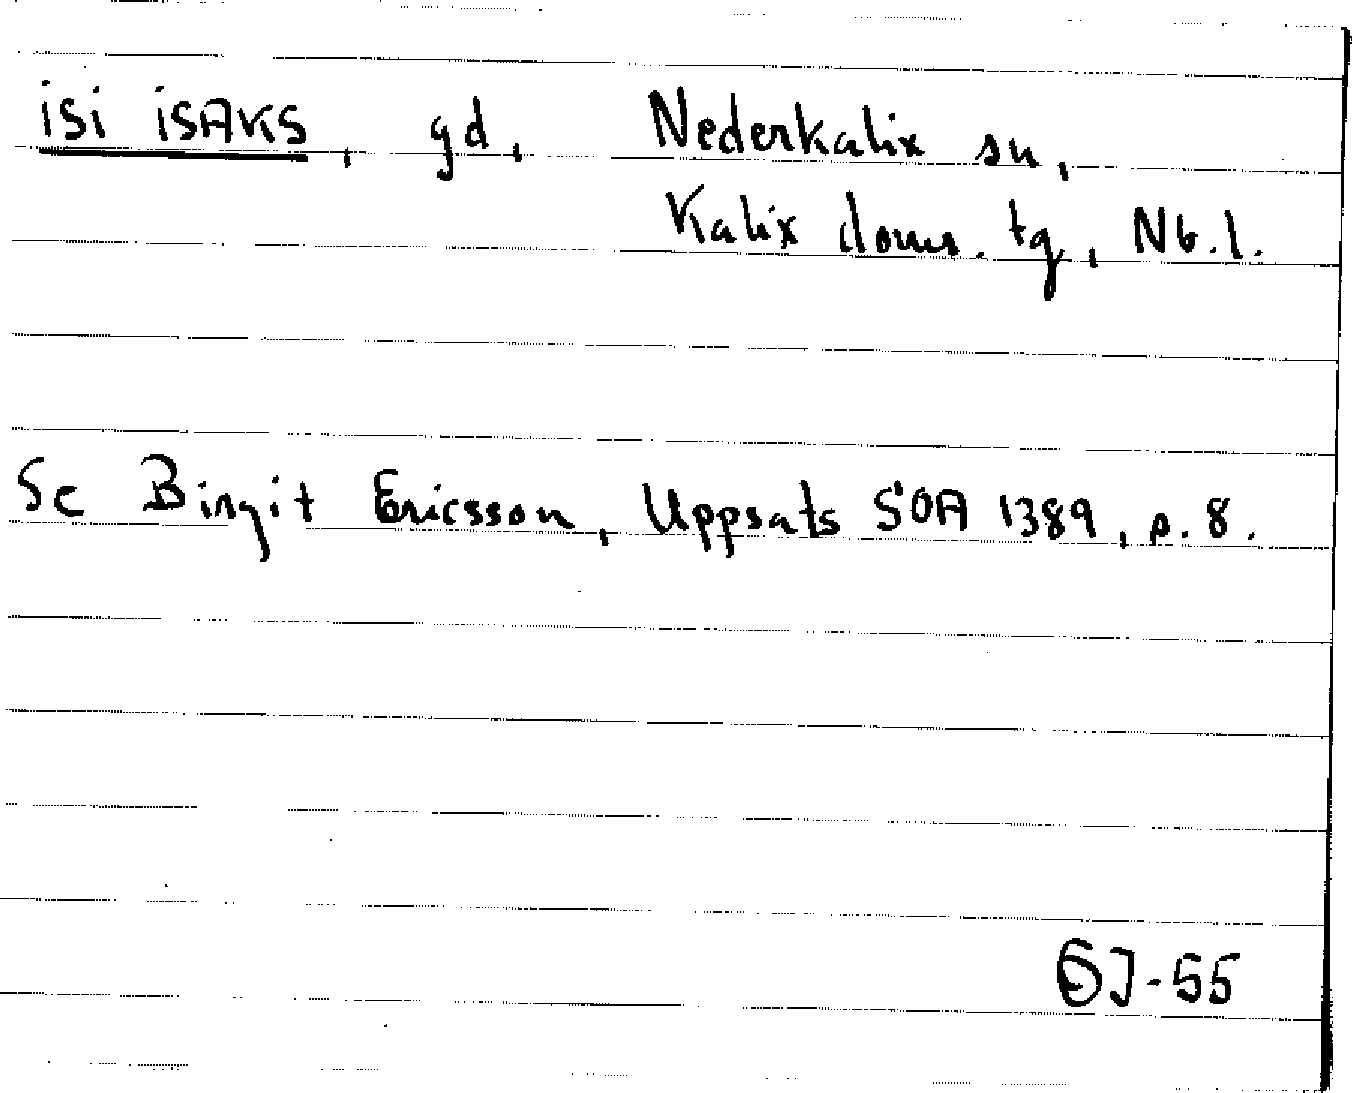 isi isAKS, gd, Nederkalix sn,
Kalix doms. tg, Nb.l.
Se Birgit Ericsson, Uppsats SOA 1389, s. 8.
J-55